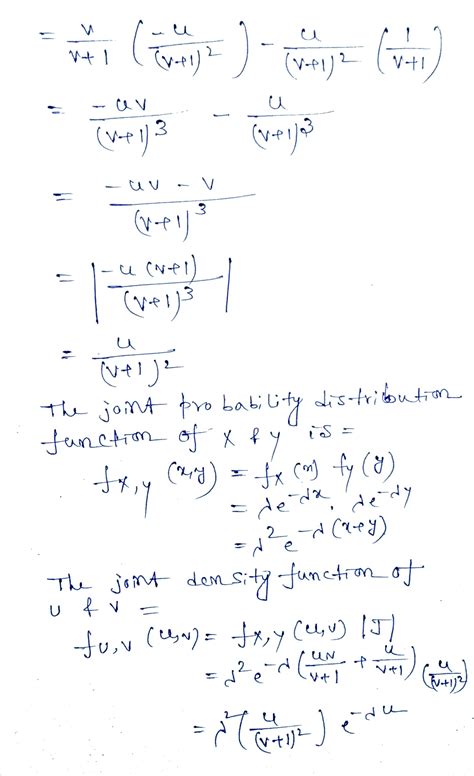 = v/(v+1) (-u/(v+1)^2) - u/(v+1)^2 (1/(v+1))
= -uv/(v+1)^3 - u/(v+1)^3
= (-uv - v)/(v+1)^3
= |-u(v+1)/(v+1)^3|
= u/(v+1)^2
The joint probability distribution
function of x & y is =
fx,y (x,y) = fx(x) fy(y)
= λe^-λx . λe^-λy
= λ^2 e^-λ(x+y)
The joint density function of
u & v =
fu,v (u,v) = fx,y (u,v) |J|
= λ^2 e^-λ(uv/(v+1) + u/(v+1)) (u/(v+1)^2)
= λ^2 (u/(v+1)^2) e^-λu